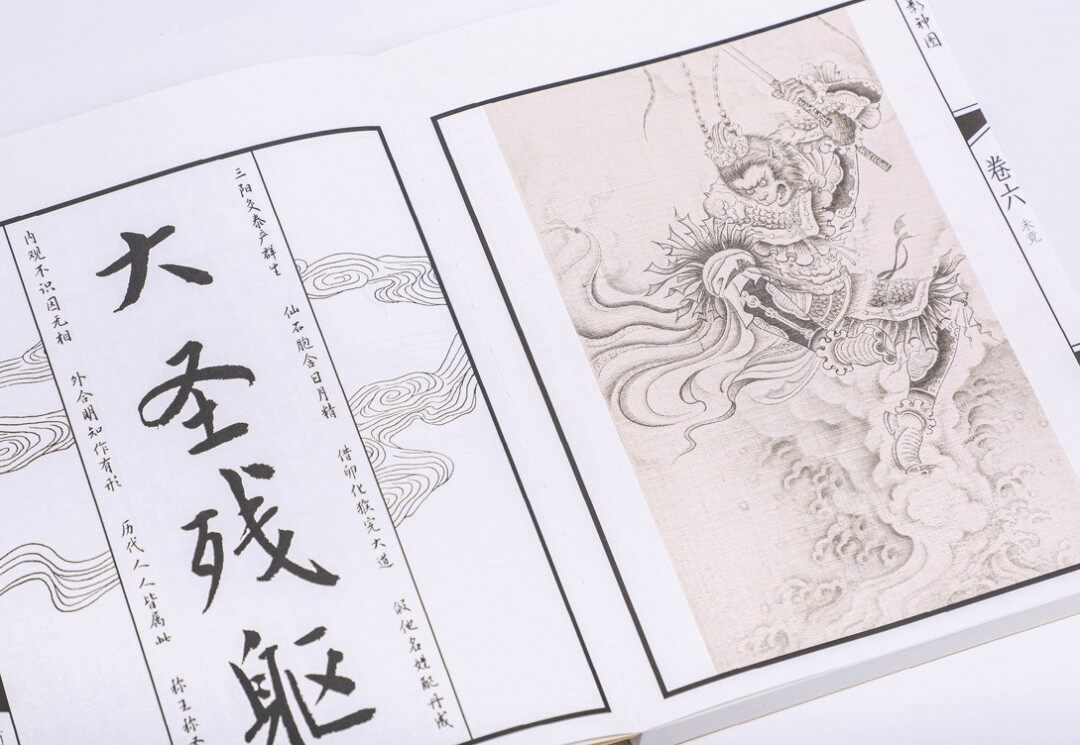 影神图
卷六
未竟
三阳交泰产群生 仙石胞含日月精 借卵化猴完大道 假他名姓配丹成
大圣残躯
内观不识因无相 外合明知作有形 历代人人皆属此 称王称